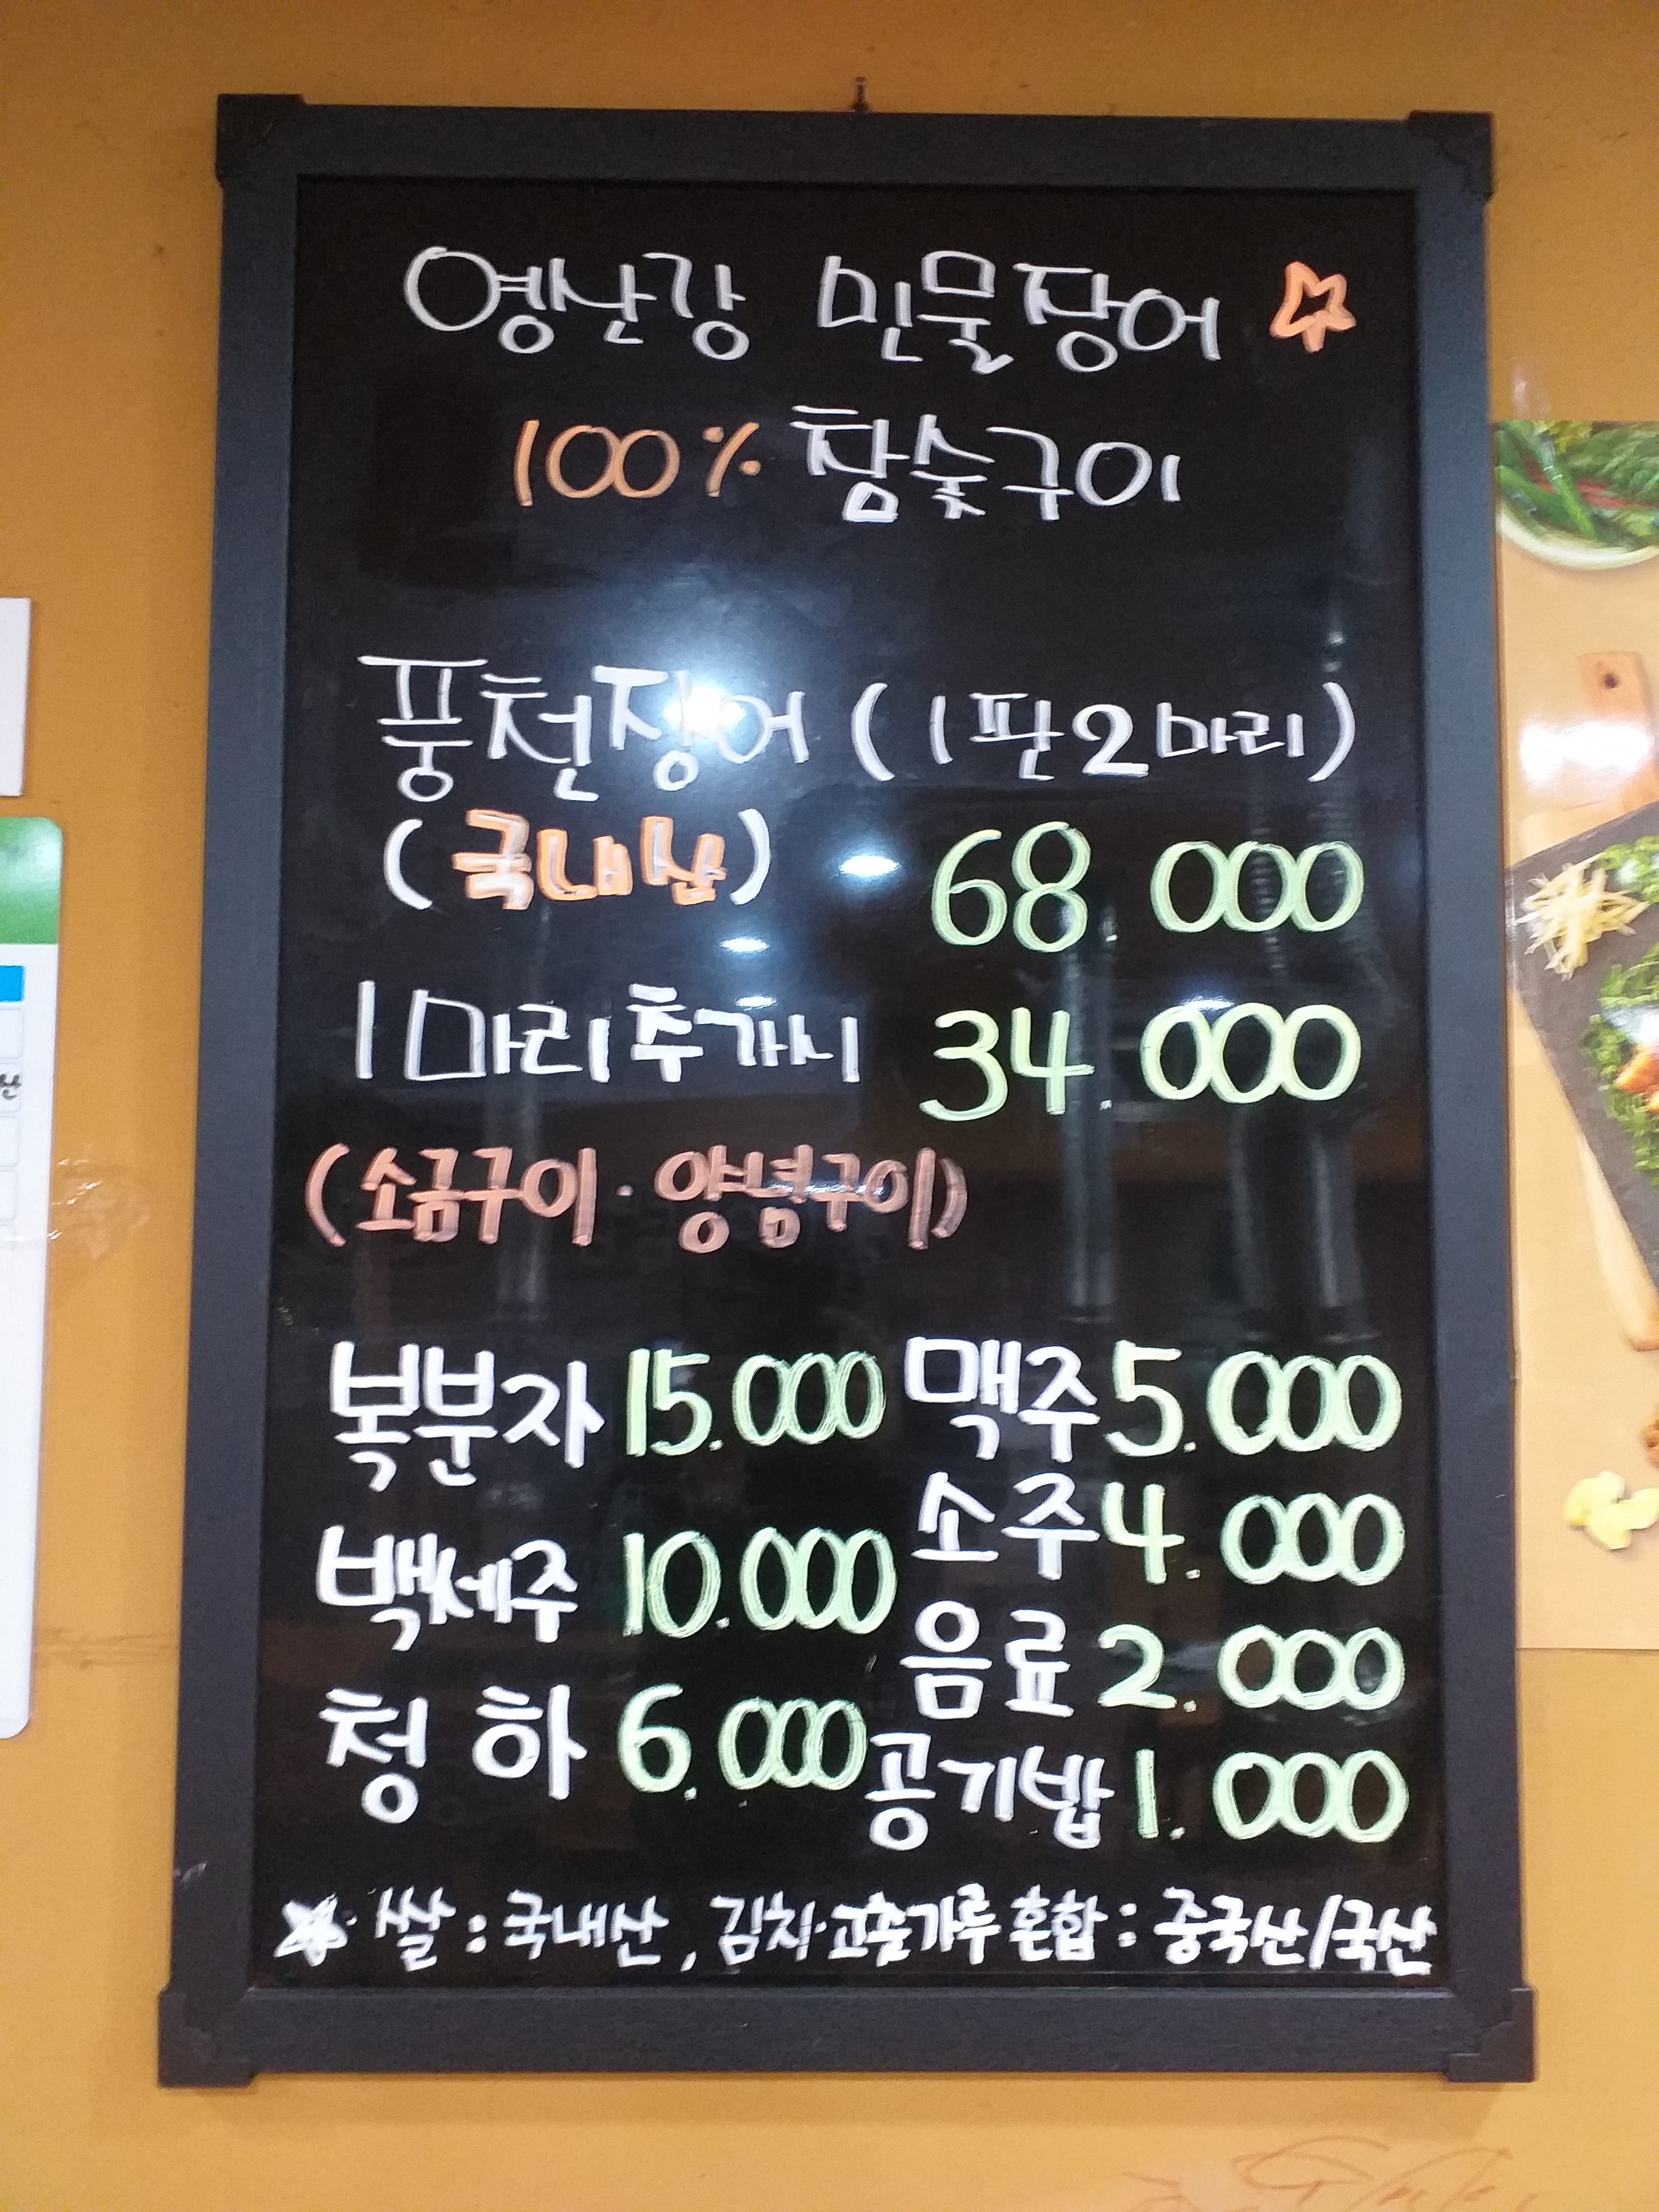 영산강 민물장어
100% 참숯구이
풍천장어 (1판2마리)
(국내산) 68 000
1마리추가시 34.000
(소금구이·양념구이)
복분자 15.000 맥주 5.000
소주 4.000
백세주 10.000
음료 2.000
청하 6.000 공기밥 1.000
쌀 : 국내산, 김치·고춧가루 혼합 : 중국산/국산